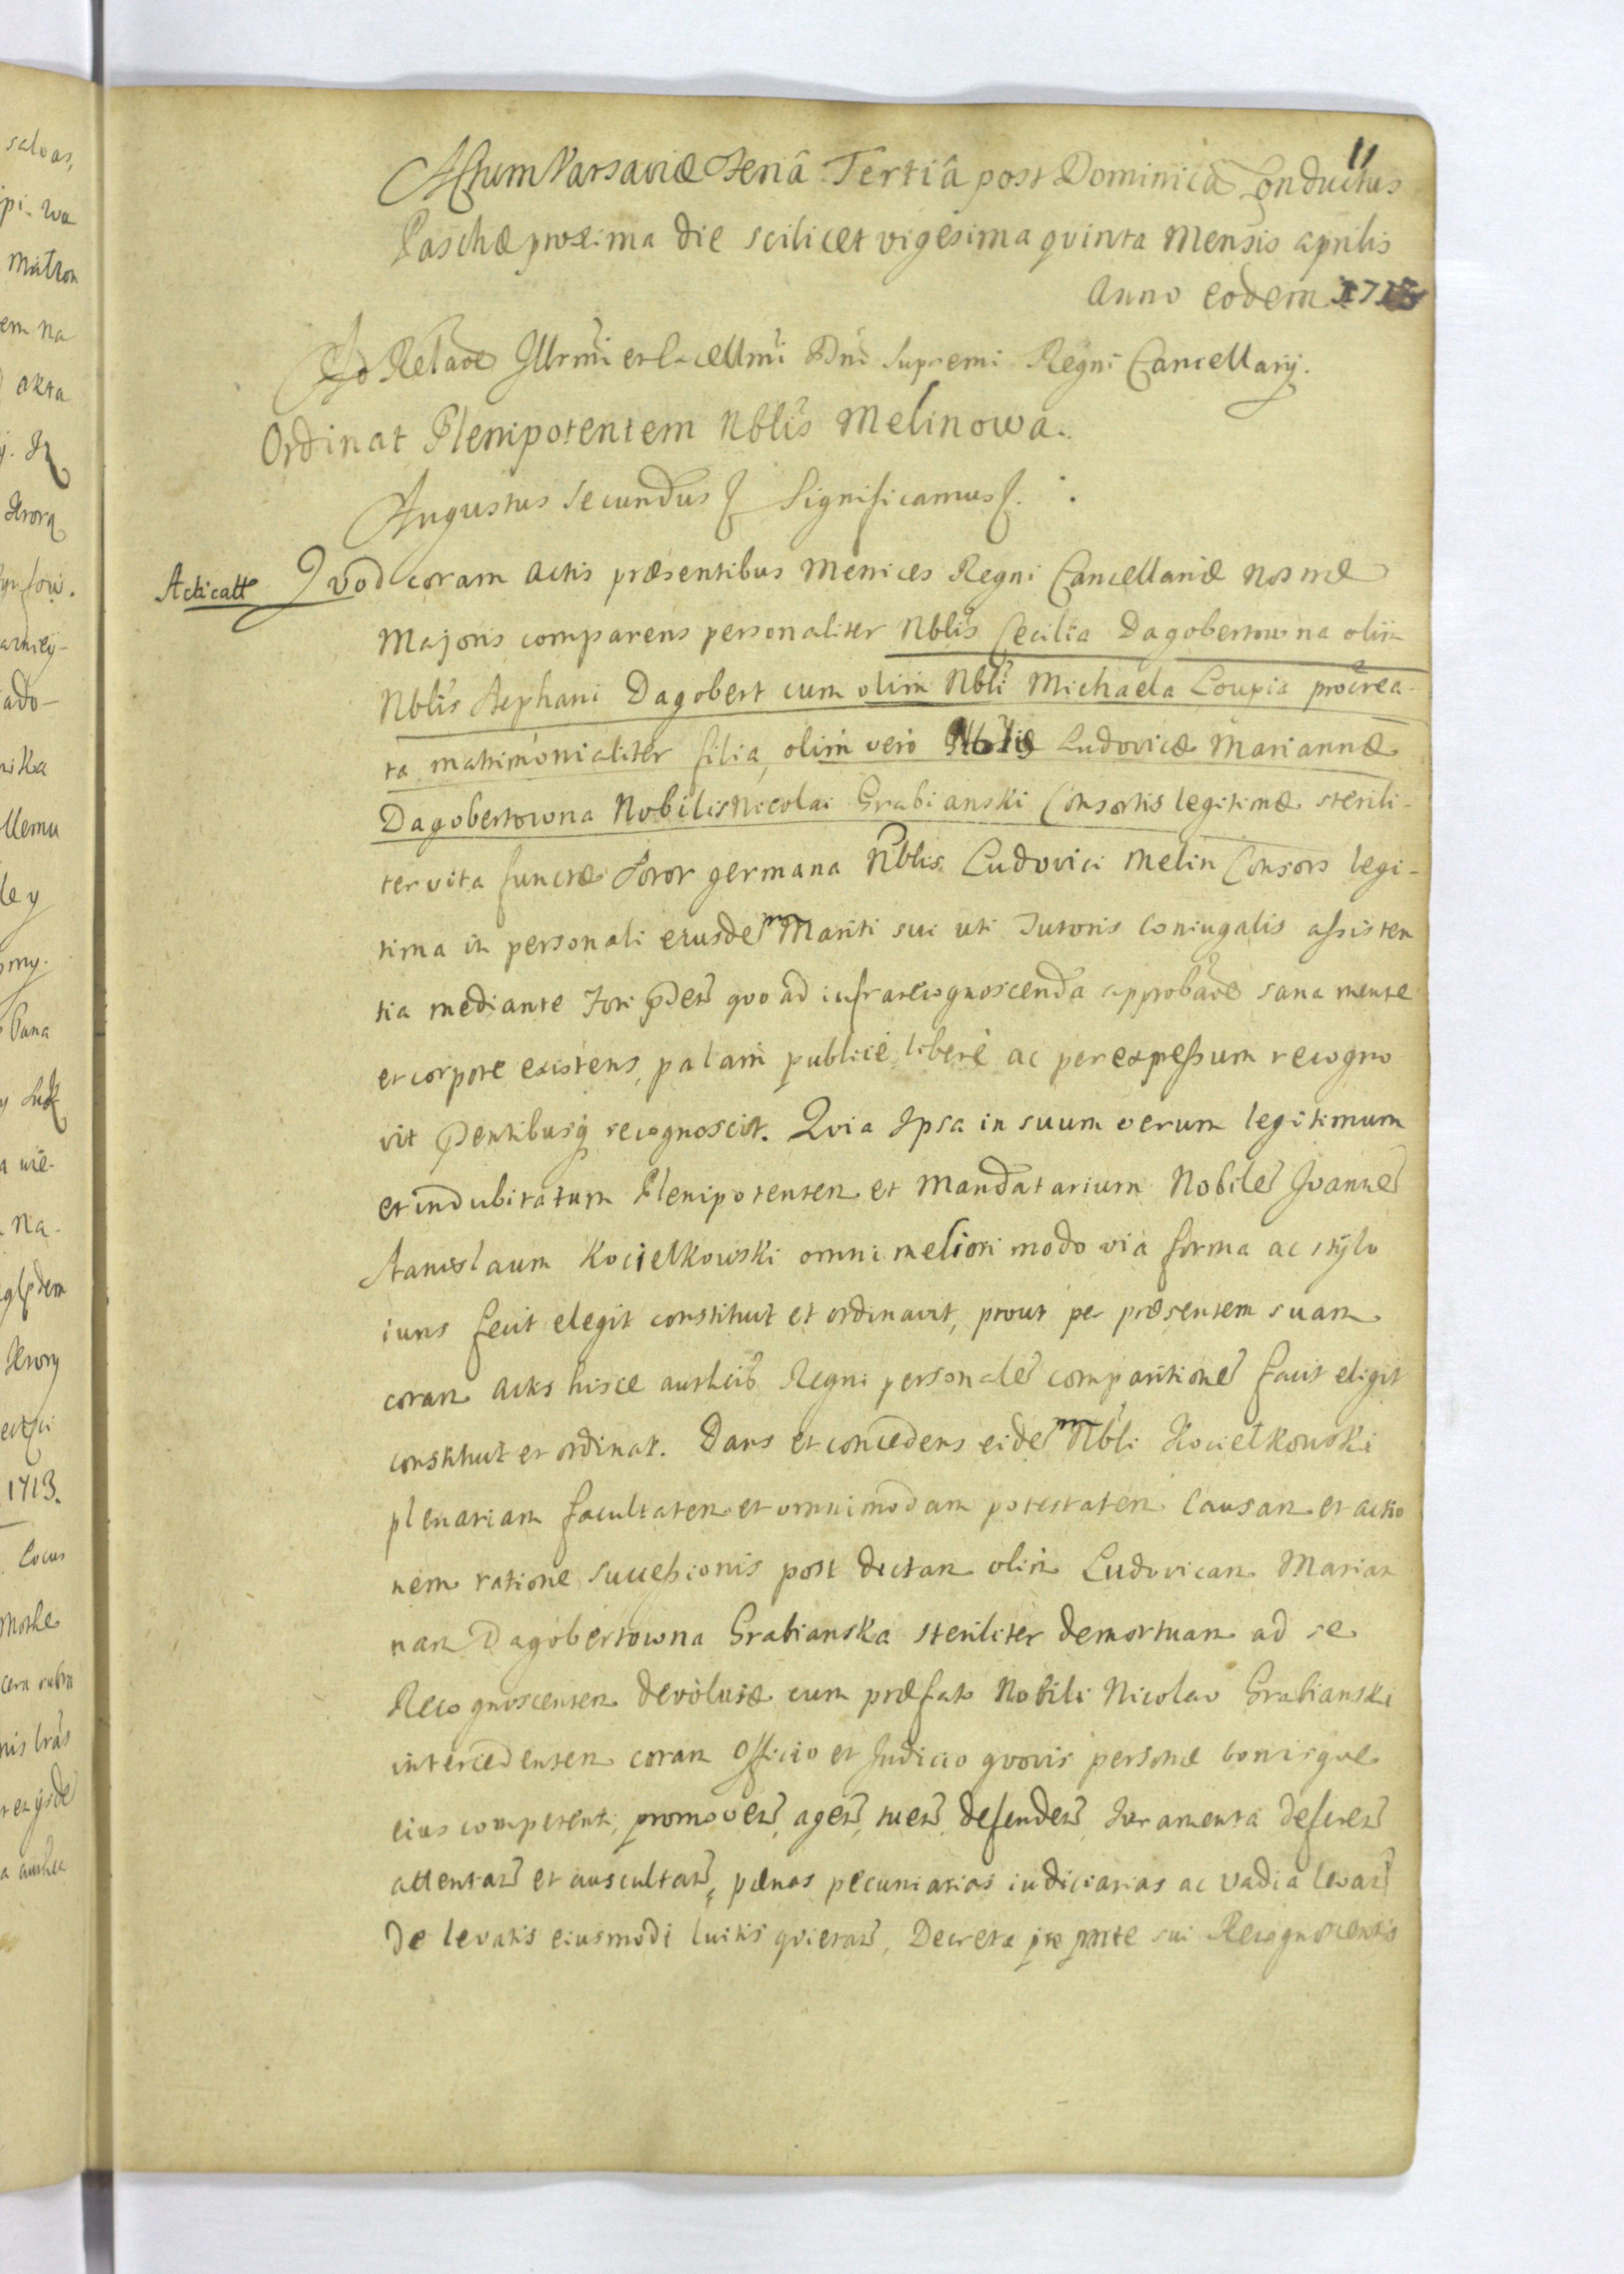 11
Actum Varsaviæ Feriâ Tertiâ post Dominicã Conductus
Paschæ proxima die scilicet vigesima qvinta Mensis aprilis
Anno eodem
Ad Relaõe Illrmi et Excellmi Dni Supremi Regni Cancellarij.
Ordinat Plenipotentem Nblis Melinowa.
Augustus Secundus Significamus
Acticatt
Qvod coram Actis præsentibus Metrices Regni Cancellariæ Nostræ
Majoris comparens personaliter Nblis Cecilia Dagobertowna olim
Nblis Stephani Dagobert cum olim Nbli Michaela Loupia procrea-
ta matrimonialiter filia, olim vero Nblis Ludovicæ Mariannæ
Dagobertowna Nobilis Nicolai Grabianski Consortis legitimæ sterili-
ter vita functæ Soror germana Nblis Ludovici Melin Consors legi-
tima in personali eiusdem Mariti sui uti Tutoris Coniugalis assisten
tia mediante Fori quo ad infrarecognoscenda approbaõe sana mente
et corpore existens, palam publicè liberè ac per expressum recogno
vit pentibusq recognoscit. Qvia Ipsa in suum verum legitimum
et indubitatum Plenipotentem et Mandatarium Nobilẽ Joannẽ
Stanislaum Kocielkowski omni meliori modo via forma ac stÿlo
iuris fecit elegit constituit et ordinavit, prout per præsentem suam
coram actis hisce autheñ Regni personalẽ comparitionẽ facit eligit
constituit et ordinat. Dans et concedens eidem Nbli Kocielkowski
plenariam facultatem et omnimodam potestatem Causam et actio
nem ratione successionis post dictam olim Ludovicam Marian
nam Dagobertowna Grabianska steriliter demortuam ad se
Recognoscentem devolutæ cum præfato Nobili Nicolao Grabianski
intercedentem coram Officio et Judicio qvovis personæ bonisque
eius competenti, promoven, agen, tuen, defenden, Iuramenta deferen
attentan et auscultan, pænas pecuniarias iudiciarias ac vadia levan
De levatis eiusmodi luitis qvietan, Decreta pro parte sui Recognoscentis